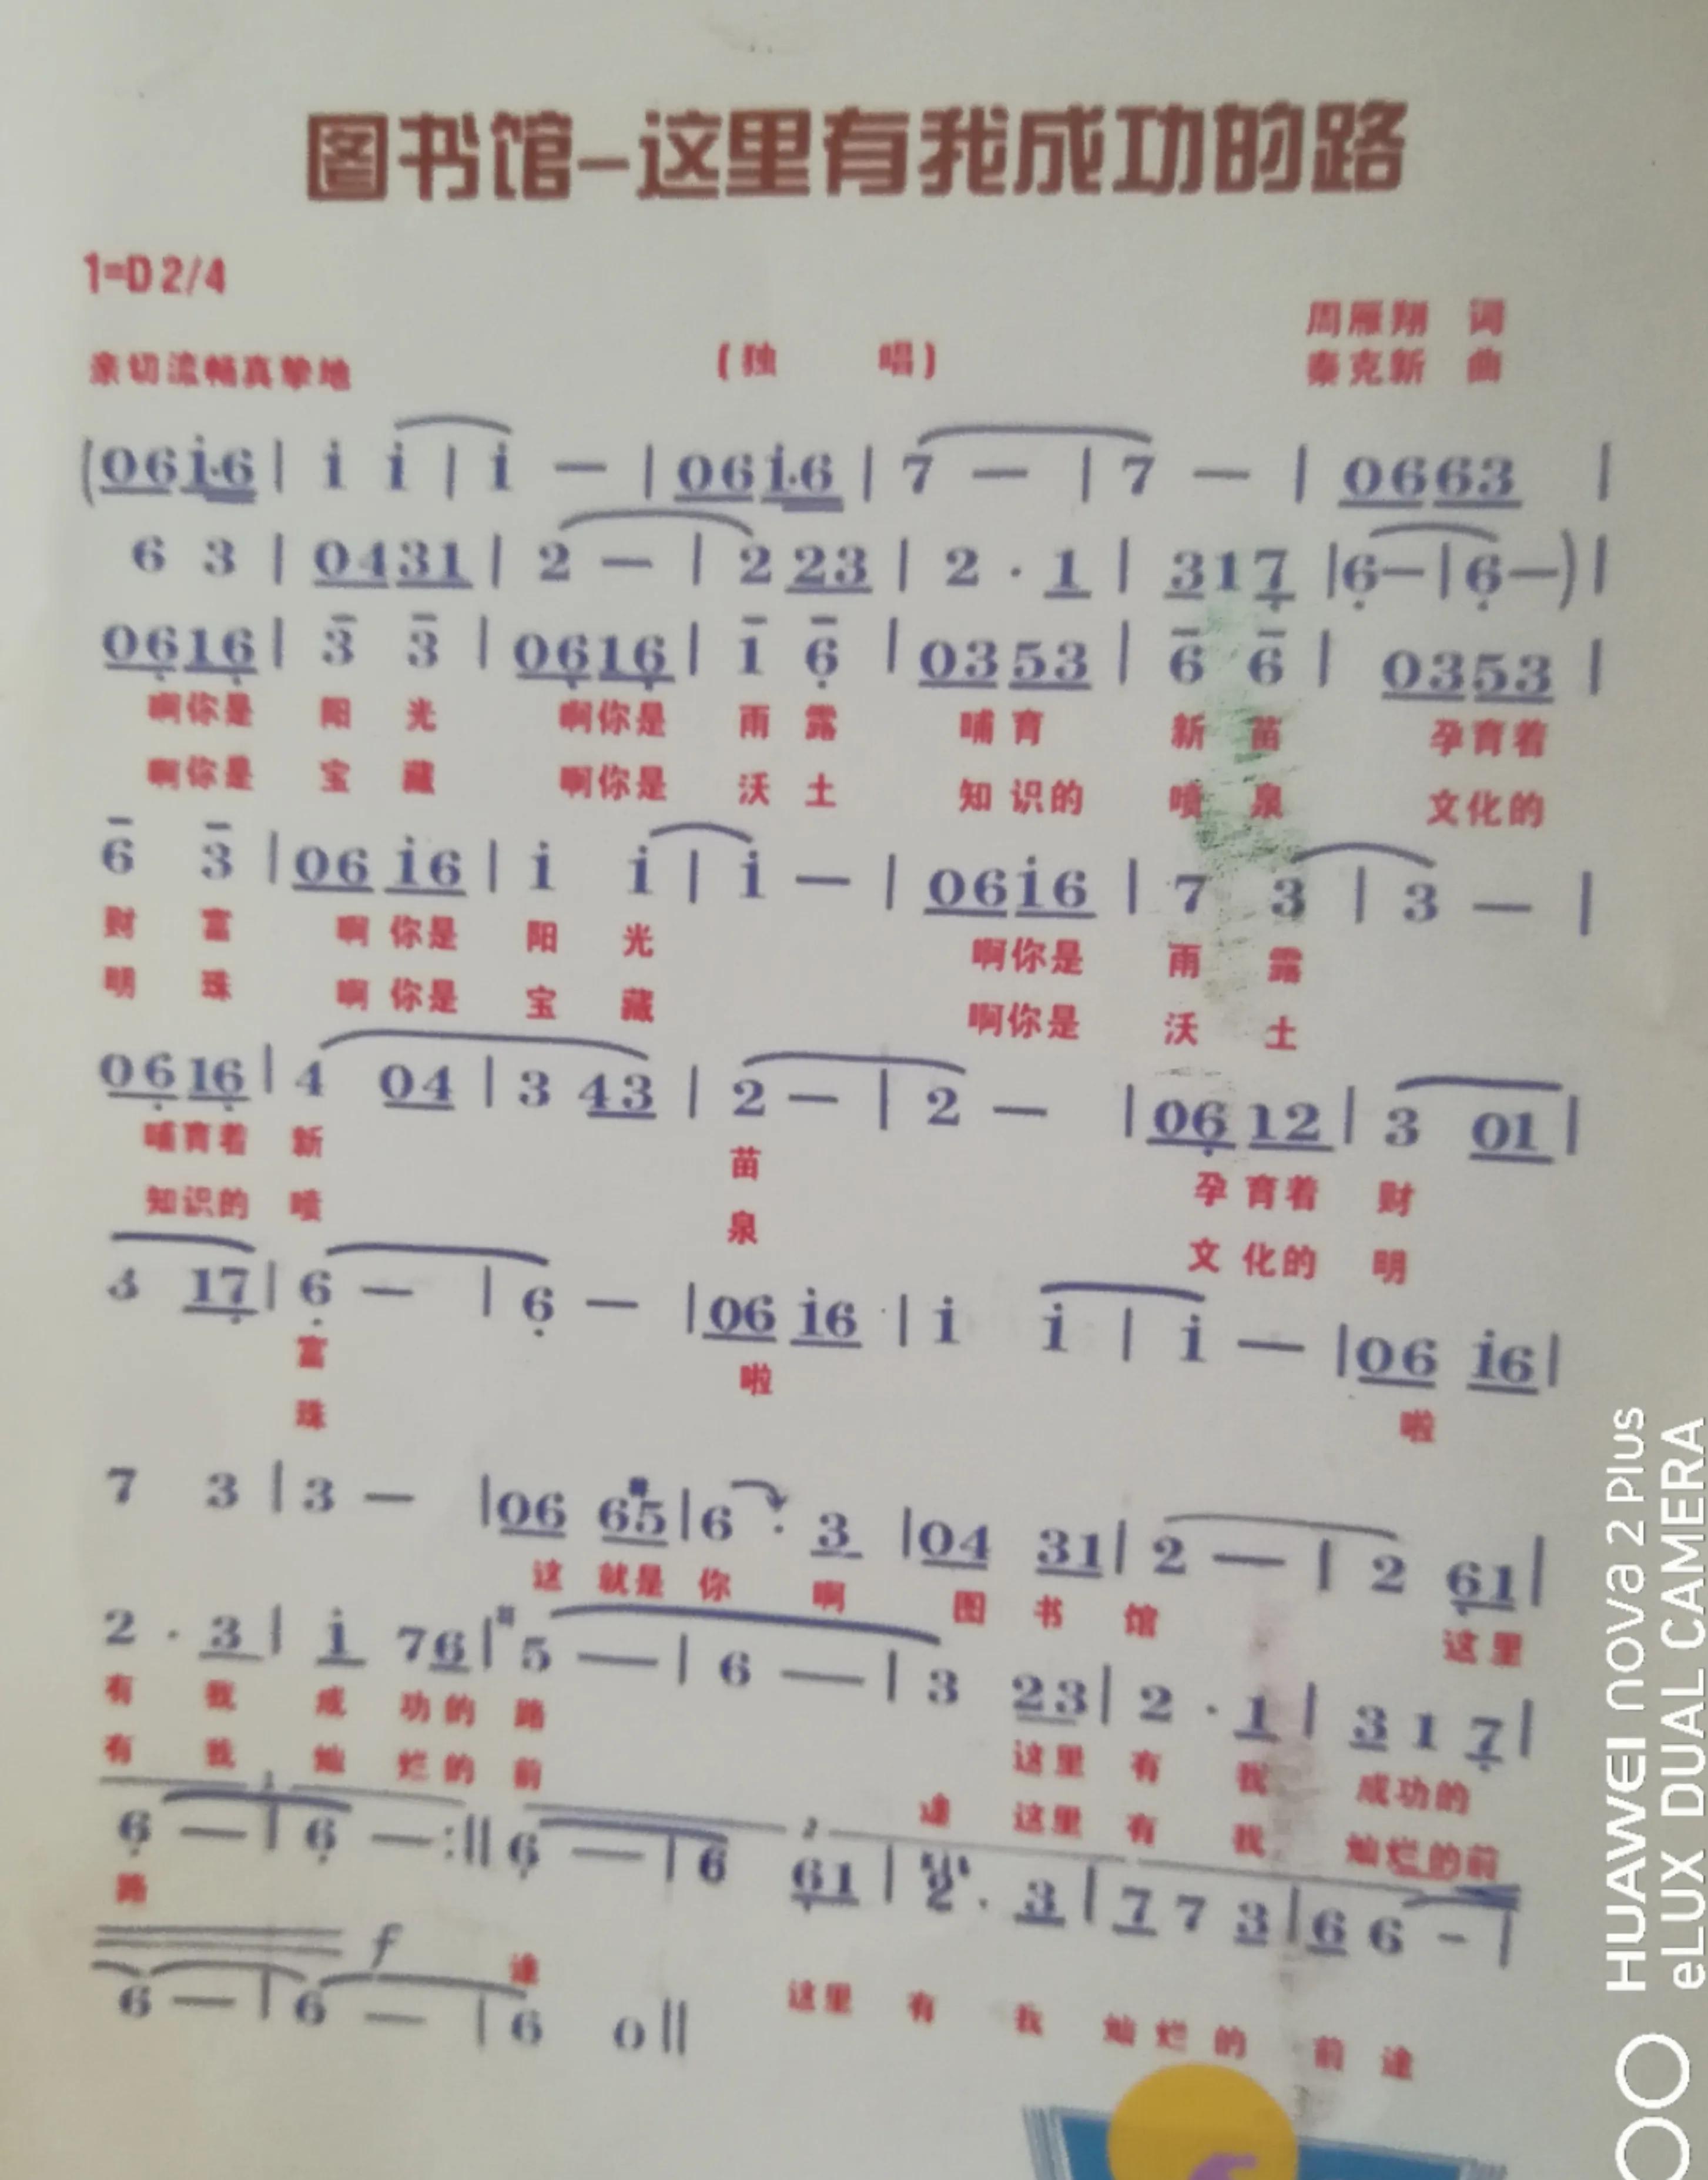 图书馆–这里有我成功的路
1=D 2/4
周雁翔 词
亲切流畅真挚地 (独 唱) 秦克新 曲
(06i·6 | i i | i — | 06i·6 | 7 — | 7 — | 0663 |
6 3 | 0431 | 2 — | 2 23 | 2 · 1 | 317 | 6— | 6—) |
0616 | 3 3 | 0616 | 1 6 | 0353 | 6 6 | 0353 |
啊你是 阳 光 啊你是 雨 露 哺育 新 苗 孕育着
啊你是 宝 藏 啊你是 沃 土 知识的 喷 泉 文化的
6 3 | 06 i6 | i i | i — | 06i6 | 7 3 | 3 — |
财 富 啊 你是 阳 光 啊你是 雨 露
明 珠 啊 你是 宝 藏 啊你是 沃 土
0616 | 4 04 | 3 43 | 2 — | 2 — | 06 12 | 3 01 |
哺育着 新 苗 孕育着 财
知识的 喷 泉 文化的 明
3 17 | 6 — | 6 — | 06 i6 | i i | i — | 06 i6 |
富 啦 啦
珠
7 3 | 3 — | 06 6#5 | 6 · 3 | 04 31 | 2 — | 2 61 |
这 就是 你 啊 图 书 馆 这里
2 · 3 | i 76 | #5 — | 6 — | 3 23 | 2 · 1 | 3 1 7 |
有 我 成 功的 路 这里 有 我 成功的
有 我 灿 烂的 前 途 这里 有 我 灿烂的前
6 — | 6 — :|| 6 — | 6 61 | 2 · 3 | 7 7 3 | 6 6 - |
路 途 这里 有 我 灿 烂 的 前 途
f
6 — | 6 — | 6 0 ||
HUAWEI nova 2 Plus
eLUX DUAL CAMERA